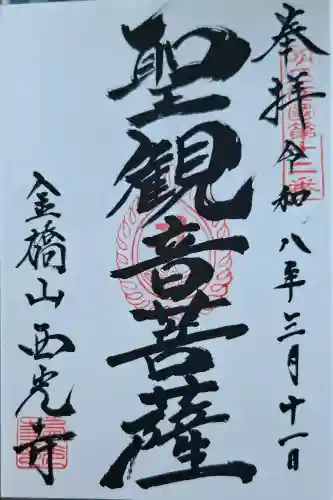 奉拝 令和八年三月十一日
聖観音菩薩
金橋山西光寺